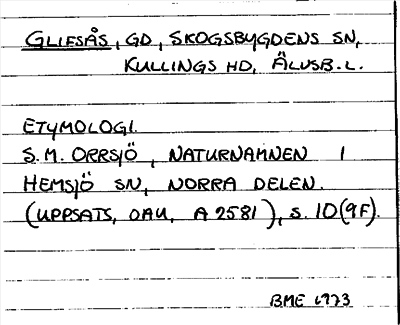 GLIFSÅS, GD, SKOGSBYGDENS SN,
KULLINGS HD, ÄLVSB.L.
ETYMOLOGI.
S.M. ORRSJÖ, NATURNAMNEN I
HEMSJÖ SN, NORRA DELEN.
(UPPSATS, OAU, A 2581), S. 10(9F).
BME 1973